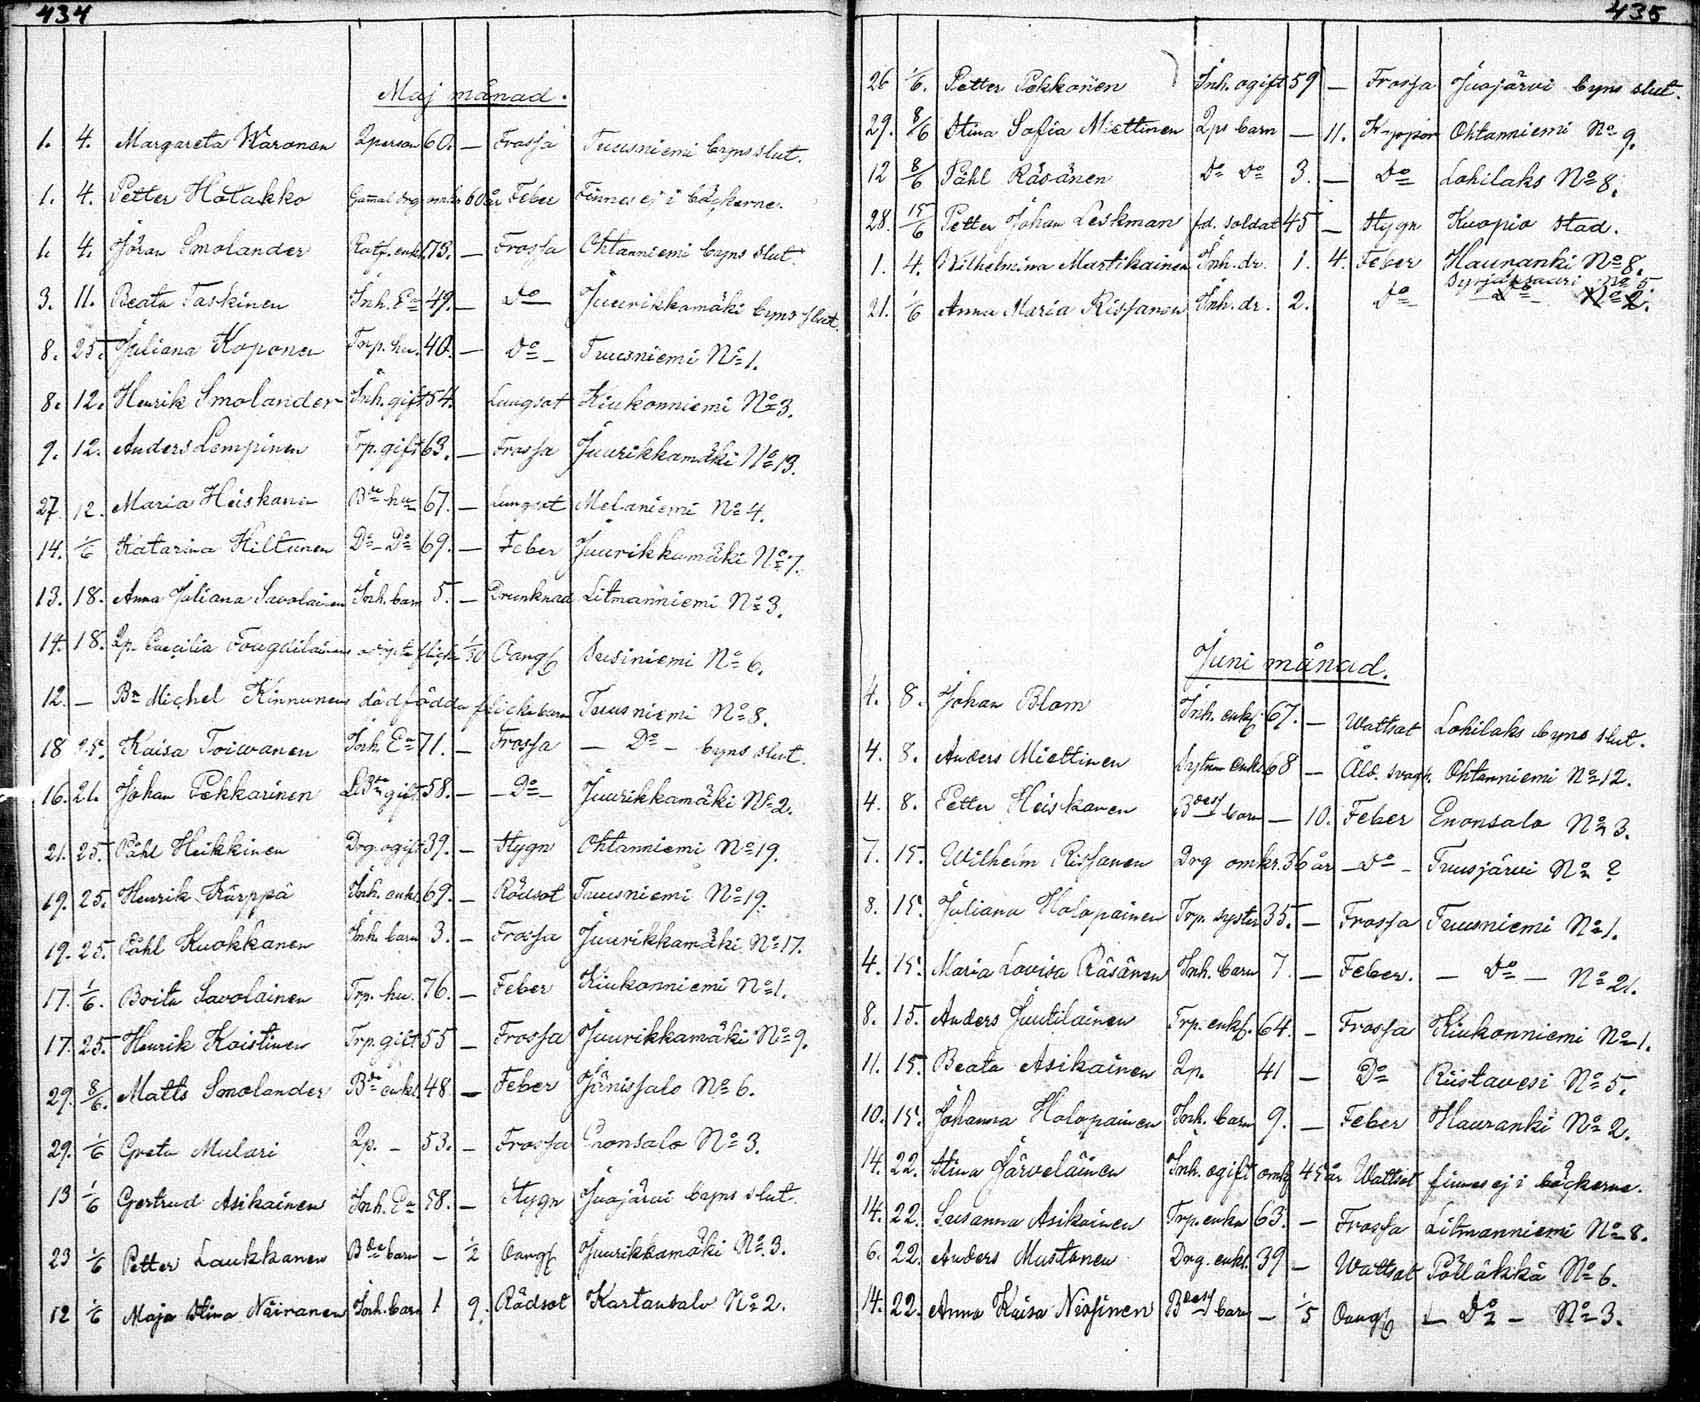 434
Maj månad.
1. 4. Margareta Waronen Qperson 60. — Frossa Tuusniemi byns slut.
1. 4. Petter Hatakko Gamal drg omkr 60 år Feber Finnes ej i böckerne.
1. 4. Jöran Smolander Ratf. enkl. 75. — Frossa Ohtanniemi byns slut.
3. 11. Beata Taskinen Inh. Ea 49. — Do Juurikkamäki byns slut.
8. 25. Juliana Koponen Trp. hu. 40. — Do — Tuusniemi No 1.
8. 12. Henrik Smolander Inh. gift 54. Lungsot Kiukonniemi No 3.
9. 12. Anders Lempinen Trp. gift 63. — Frossa Juurikkamäki No 13.
27. 12. Maria Heiskanen Bde hu 67. — Lungsot Melaniemi No 4.
14. 1/6 Katarina Hiltunen Do — Do 69. — Feber Juurikkamäki No 7.
13. 18. Anna Juliana Savolainen Inh. barn 5. — Drunknad Litmanniemi No 3.
14. 18. Qp. Caecilia Fougdilainens flicka 1/30 Oangf Susiniemi No 6.
12. — Bn Michel Kinnunens dödfödda flickebarn Tuusniemi No 8.
18 25. Kaisa Toiwanen Inh. Ea 71. — Frossa — Do — byns slut.
16. 21. Johan Pekkarinen gift 58. — — Do — Juurikkamäki No 2.
21. 25. Påhl Heikkinen Drg. ogift 39. — Hygn Ohtanniemi No 19.
19. 25. Henrik Kärppä Inh. enkl. 69. — Rödsot Tuusniemi No 19.
19. 25. Påhl Kuokkanen Inh. barn 3. — Frossa Juurikkamäki No 17.
17. 1/6. Brita Savolainen Trp. hu. 76. — Feber Kiukonniemi No 1.
17. 25. Henrik Koistinen Trp. gift 55 — Frossa Juurikkamäki No 9.
29. 8/6. Matts Smolander Bde enkl 48 — Feber Jänissalo No 6.
29. 1/6 Greta Mulari Qp. — 53. — Frossa Enonsalo No 3.
13 1/6 Gertrud Asikainen Inh. Ea 58. — Hygn Juojärvi byns slut.
23 1/6 Petter Laukkanen Bde barn — 1/2 Oangf Juurikkamäki No 3.
12 1/6 Maja Stina Näiranen Inh. barn 1 9. Rödsot Kartansalo No 2.
435
26 1/6. Petter Pekkonen Inh. ogift 59 — Frossa Juojärvi byns slut.
29. 8/6 Stina Sofia Miettinen Qps barn — 11. Koppor Ohtanniemi No 9.
12 8/6 Påhl Räsänen Do Do 3. — Do Lohilaks No 8.
28. 15/6 Petter Johan Leskman fd. soldat 45 — Hygn Kuopio stad.
1. 4. Wilhelmina Martikainen Inh. dr. 1. 4. Feber Hauranki No 8.
No 5.
21. 1/6 Anna Maria Rissanen Inh. dr. 2. Do — Do — No 2.
Juni månad.
4. 8. Johan Blom Inh. enkf 67. — Wattsot Lohilaks byns slut.
4. 8. Anders Miettinen Sytnm enkl 68 — Åld. svagh. Ohtanniemi No 12.
4. 8. Petter Heiskanen Boes barn — 10. Feber Enonsalo No 3.
7. 15. Wilhelm Rissanen Drg omkr. 36 år — Do — Tuusjärvi No ?
8. 15. Juliana Holopainen Trp. syster 35. — Frossa Tuusniemi No 1.
4. 15. Maria Lovisa Räsänen Inh. barn 7. — Feber. — Do — No 21.
8. 15. Anders Juutilainen Trp. enkf. 64. — Frossa Kiukonniemi No 1.
11. 15. Beata Asikainen Qp. 41 — Do Riistavesi No 5.
10. 15. Johanna Holopainen Inh. barn 9. — Feber Hauranki No 2.
14. 22. Stina Järveläinen Inh. ogift omkr 45 år Wattsot finnes ej i böckerne.
14. 22. Susanna Asikainen Trp. enka 63. — Frossa Litmanniemi No 8.
6. 22. Anders Mustonen Drg. enkl. 39 — Wattsot Pölläkkä No 6.
14. 22. Anna Kaisa Nissinen Boes barn — 1/5 Oangf — Do — No 3.